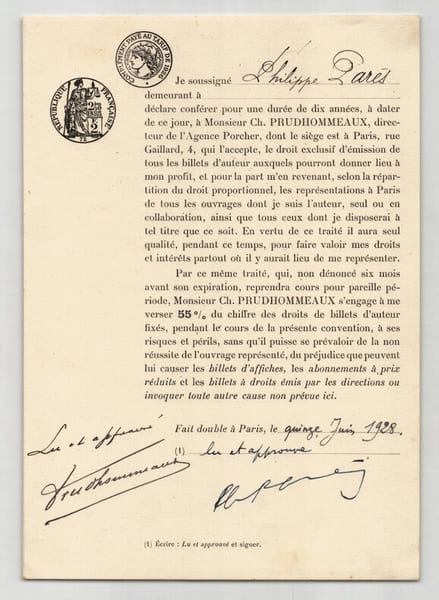 COMPLÉMENT PAYÉ AU TARIF DE
RÉPUBLIQUE FRANÇAISE
Je soussigné Philippe Parès
demeurant à
déclare conférer pour une durée de dix années, à dater
de ce jour, à Monsieur Ch. PRUDHOMMEAUX, direc-
teur de l'Agence Porcher, dont le siège est à Paris, rue
Gaillard, 4, qui l'accepte, le droit exclusif d'émission de
tous les billets d'auteur auxquels pourront donner lieu à
mon profit, et pour la part m'en revenant, selon la répar-
tition du droit proportionnel, les représentations à Paris
de tous les ouvrages dont je suis l'auteur, seul ou en
collaboration, ainsi que tous ceux dont je disposerai à
tel titre que ce soit. En vertu de ce traité il aura seul
qualité, pendant ce temps, pour faire valoir mes droits
et intérêts partout où il y aurait lieu de me représenter.
Par ce même traité, qui, non dénoncé six mois
avant son expiration, reprendra cours pour pareille pé-
riode, Monsieur Ch. PRUDHOMMEAUX s'engage à me
verser 55 % du chiffre des droits de billets d'auteur
fixés, pendant le cours de la présente convention, à ses
risques et périls, sans qu'il puisse se prévaloir de la non
réussite de l'ouvrage représenté, du préjudice que peuvent
lui causer les billets d'affiches, les abonnements à prix
réduits et les billets à droits émis par les directions ou
invoquer toute autre cause non prévue ici.
Fait double à Paris, le quinze Juin 1928.
Lu et approuvé
(1) lu et approuvé
Prudhommeaux
(1) Écrire : Lu et approuvé et signer.